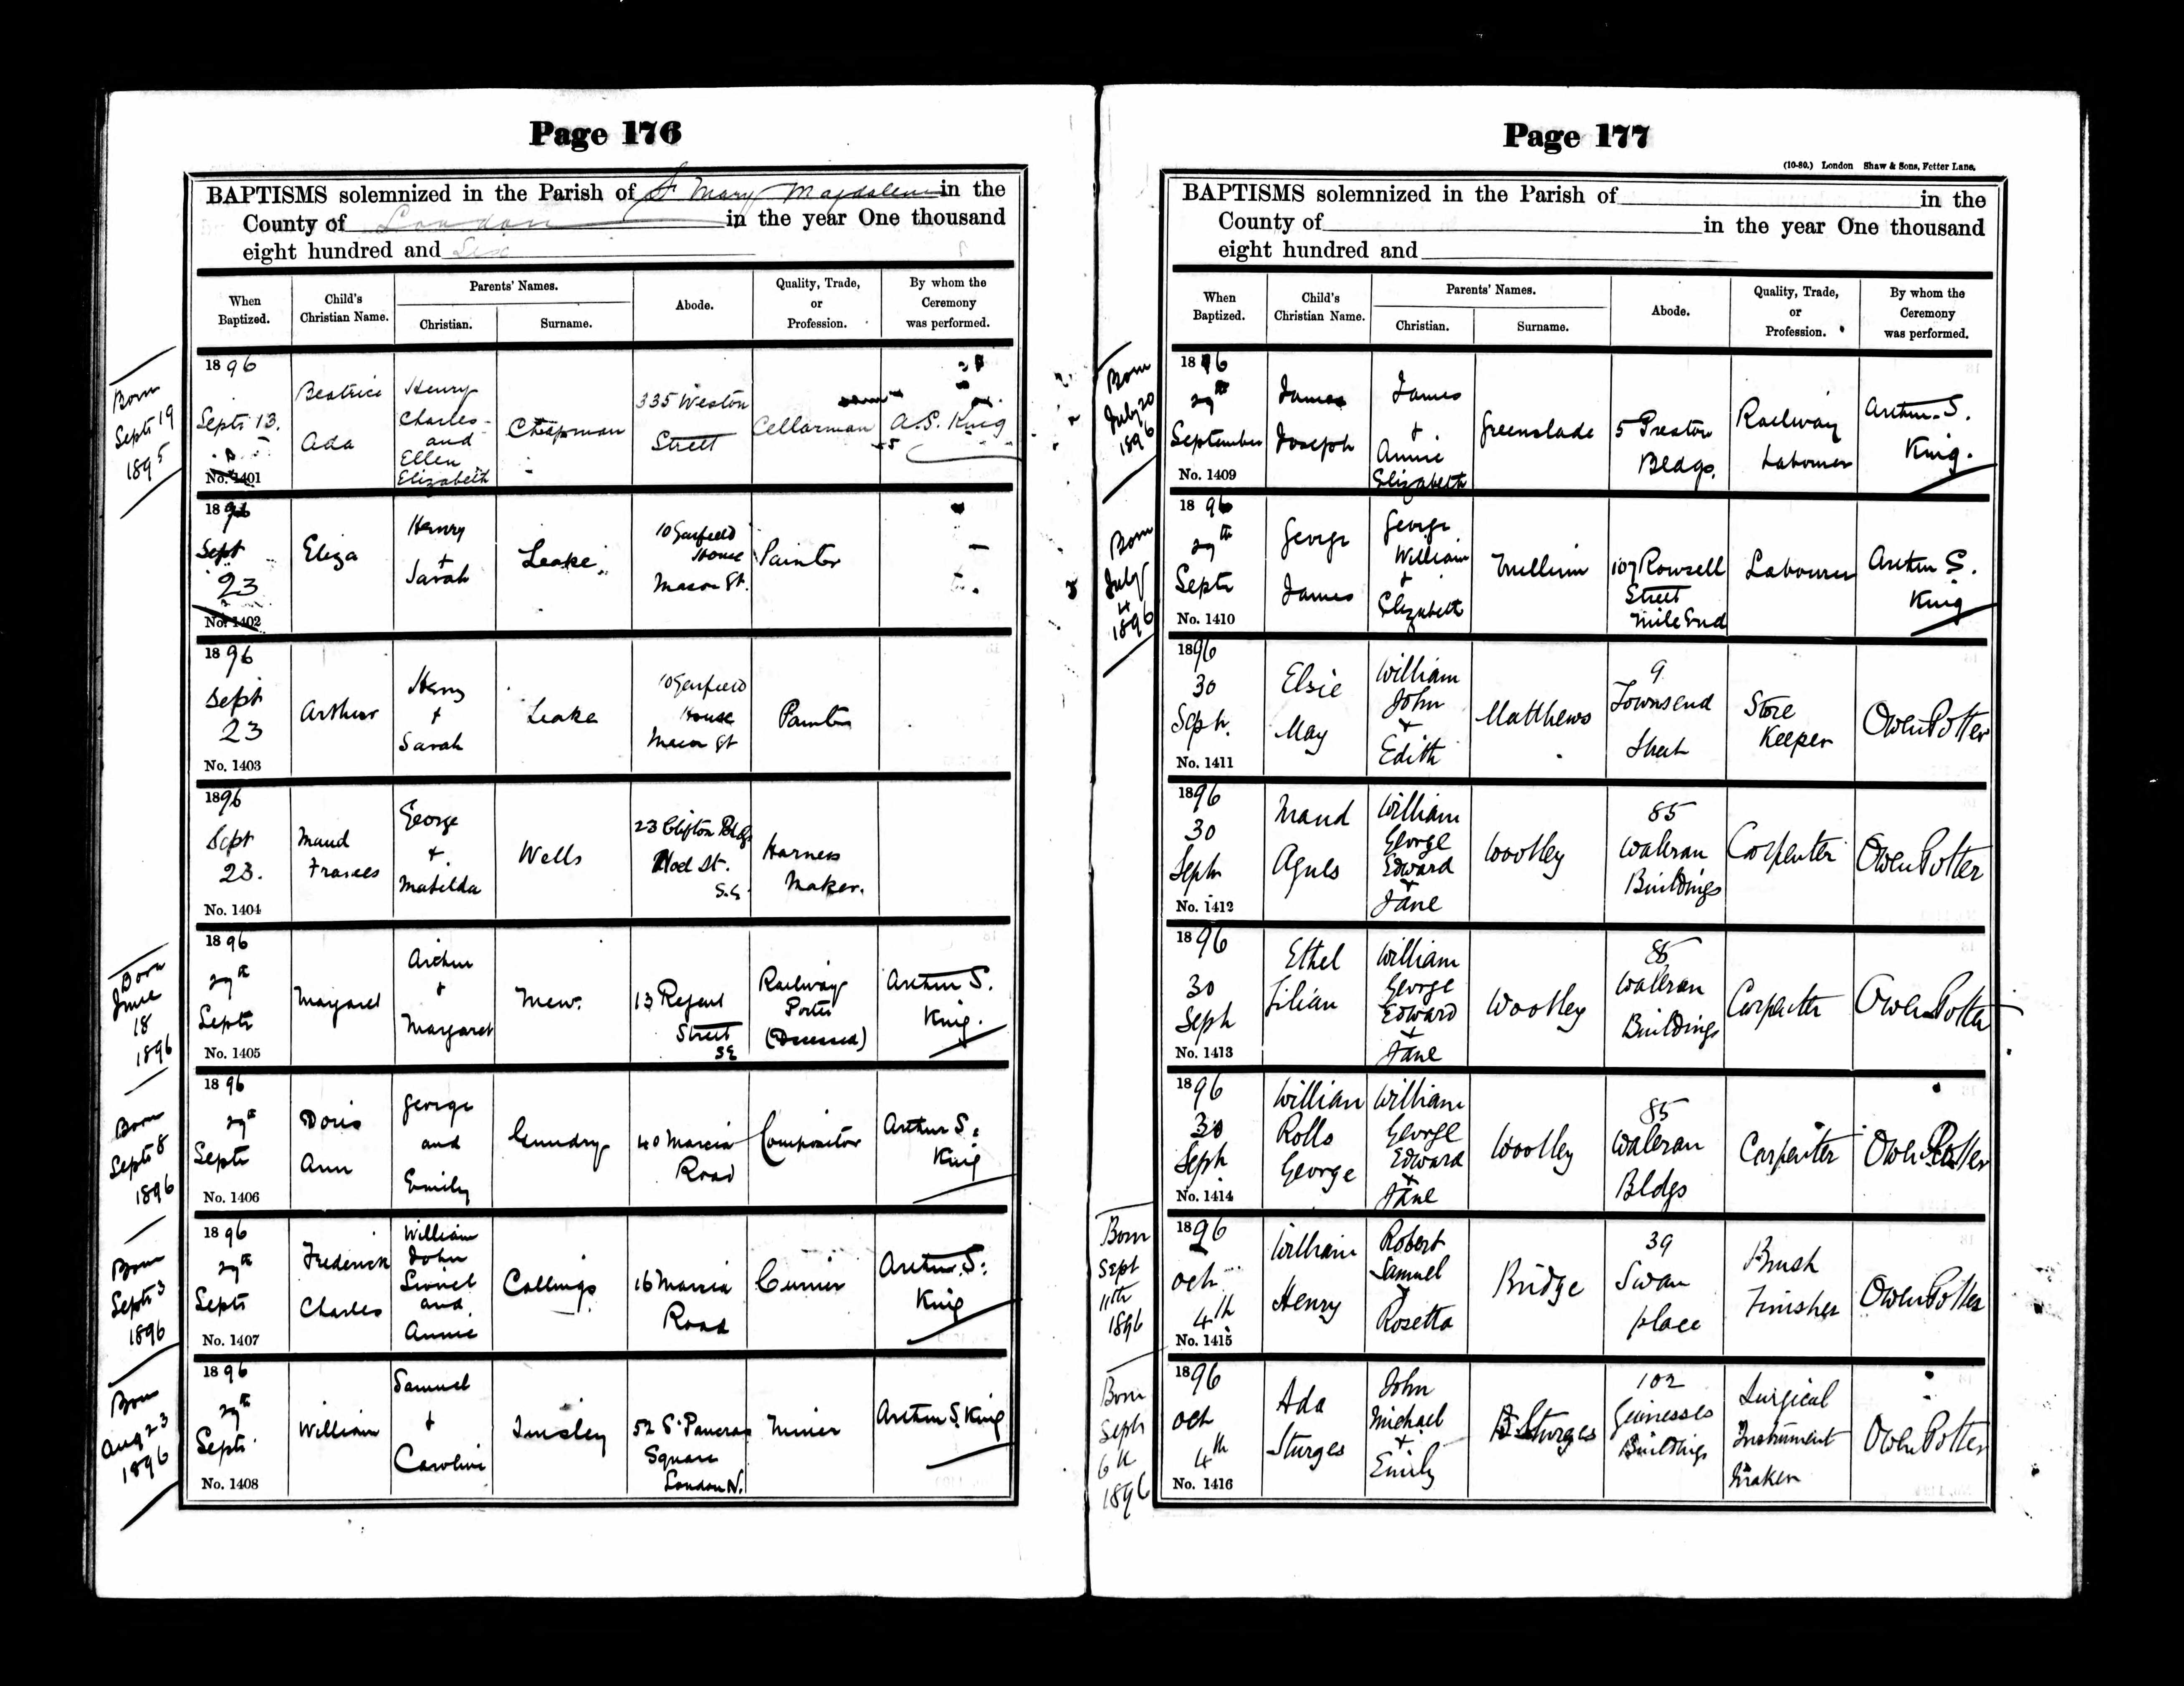 Page 176
BAPTISMS solemnized in the Parish of St Mary Magdalen in the
County of London in the year One thousand
eight hundred and
When Baptized. Child's Christian Name. Parents' Names. Christian. Surname. Abode. Quality, Trade, or Profession. By whom the Ceremony was performed.
Born Septr 19 1895
1896 Septr 13. No. 1401 Beatrice Ada Henry Charles and Ellen Elizabeth Chapman 335 Weston Street Cellarman A.S. King
1896 Sept 23 No. 1402 Eliza Henry + Sarah Leake 10 Garfield House Mason St. Painter
1896 Sept 23 No. 1403 Arthur Henry + Sarah Leake 10 Garfield House Mason St Painter
1896 Sept 23. No. 1404 Maud Frances George + Matilda Wells 23 Clifton Bldgs St. S.E. Harness Maker.
Born June 18 1896
1896 29th Septr No. 1405 Margaret Arthur + Margaret Mew. 13 Regent Street SE Railway Porter (Deceased) Arthur S. King.
Born Septr 8 1896
1896 29th Septr No. 1406 Doris Ann George and Emily Gundry 40 Marcia Road Compositor Arthur S. King
Born Septr 3 1896
1896 29th Septr No. 1407 Frederick Charles William John Lionel and Annie Collings 16 Marcia Road Currier Arthur S. King
Born Aug 23 1896
1896 29th Septr No. 1408 William Samuel + Caroline Tinsley 52 St Pancras Square London N. Arthur S. King
Page 177
(10-80.) London Shaw & Sons, Fetter Lane.
BAPTISMS solemnized in the Parish of in the
County of in the year One thousand
eight hundred and
When Baptized. Child's Christian Name. Parents' Names. Christian. Surname. Abode. Quality, Trade, or Profession. By whom the Ceremony was performed.
Born July 20 1896
1896 29th September No. 1409 James Joseph James + Annie Elizabeth Greenslade 5 Preston Bldgs. Railway Labourer Arthur S. King.
Born July 4 1896
1896 29th Septr No. 1410 George James George William + Elizabeth 107 Rowsell Street Mile End Labourer Arthur S. King
1896 30 Sept. No. 1411 Elsie May William John + Edith Matthews 9 Townsend Street Store Keeper Owen Potter
1896 30 Sept No. 1412 Maud Agnes William George Edward + Jane Woolley 85 Waleran Buildings Carpenter Owen Potter
1896 30 Sept No. 1413 Ethel Lilian William George Edward + Jane Woolley 85 Waleran Buildings Carpenter Owen Potter
1896 30 Sept No. 1414 William Rolls George William George Edward + Jane Woolley 85 Waleran Bldgs Carpenter Owen Potter
Born Sept 11th 1896
1896 Oct 4th No. 1415 William Henry Robert Samuel + Rosetta Bridge 39 Swan Place Brush Finisher Owen Potter
Born Sept 6th 1896
1896 Oct 4th No. 1416 Ada Sturges John Michael + Emily Sturges 102 Guinesses Buildings Surgical Instrument Maker Owen Potter